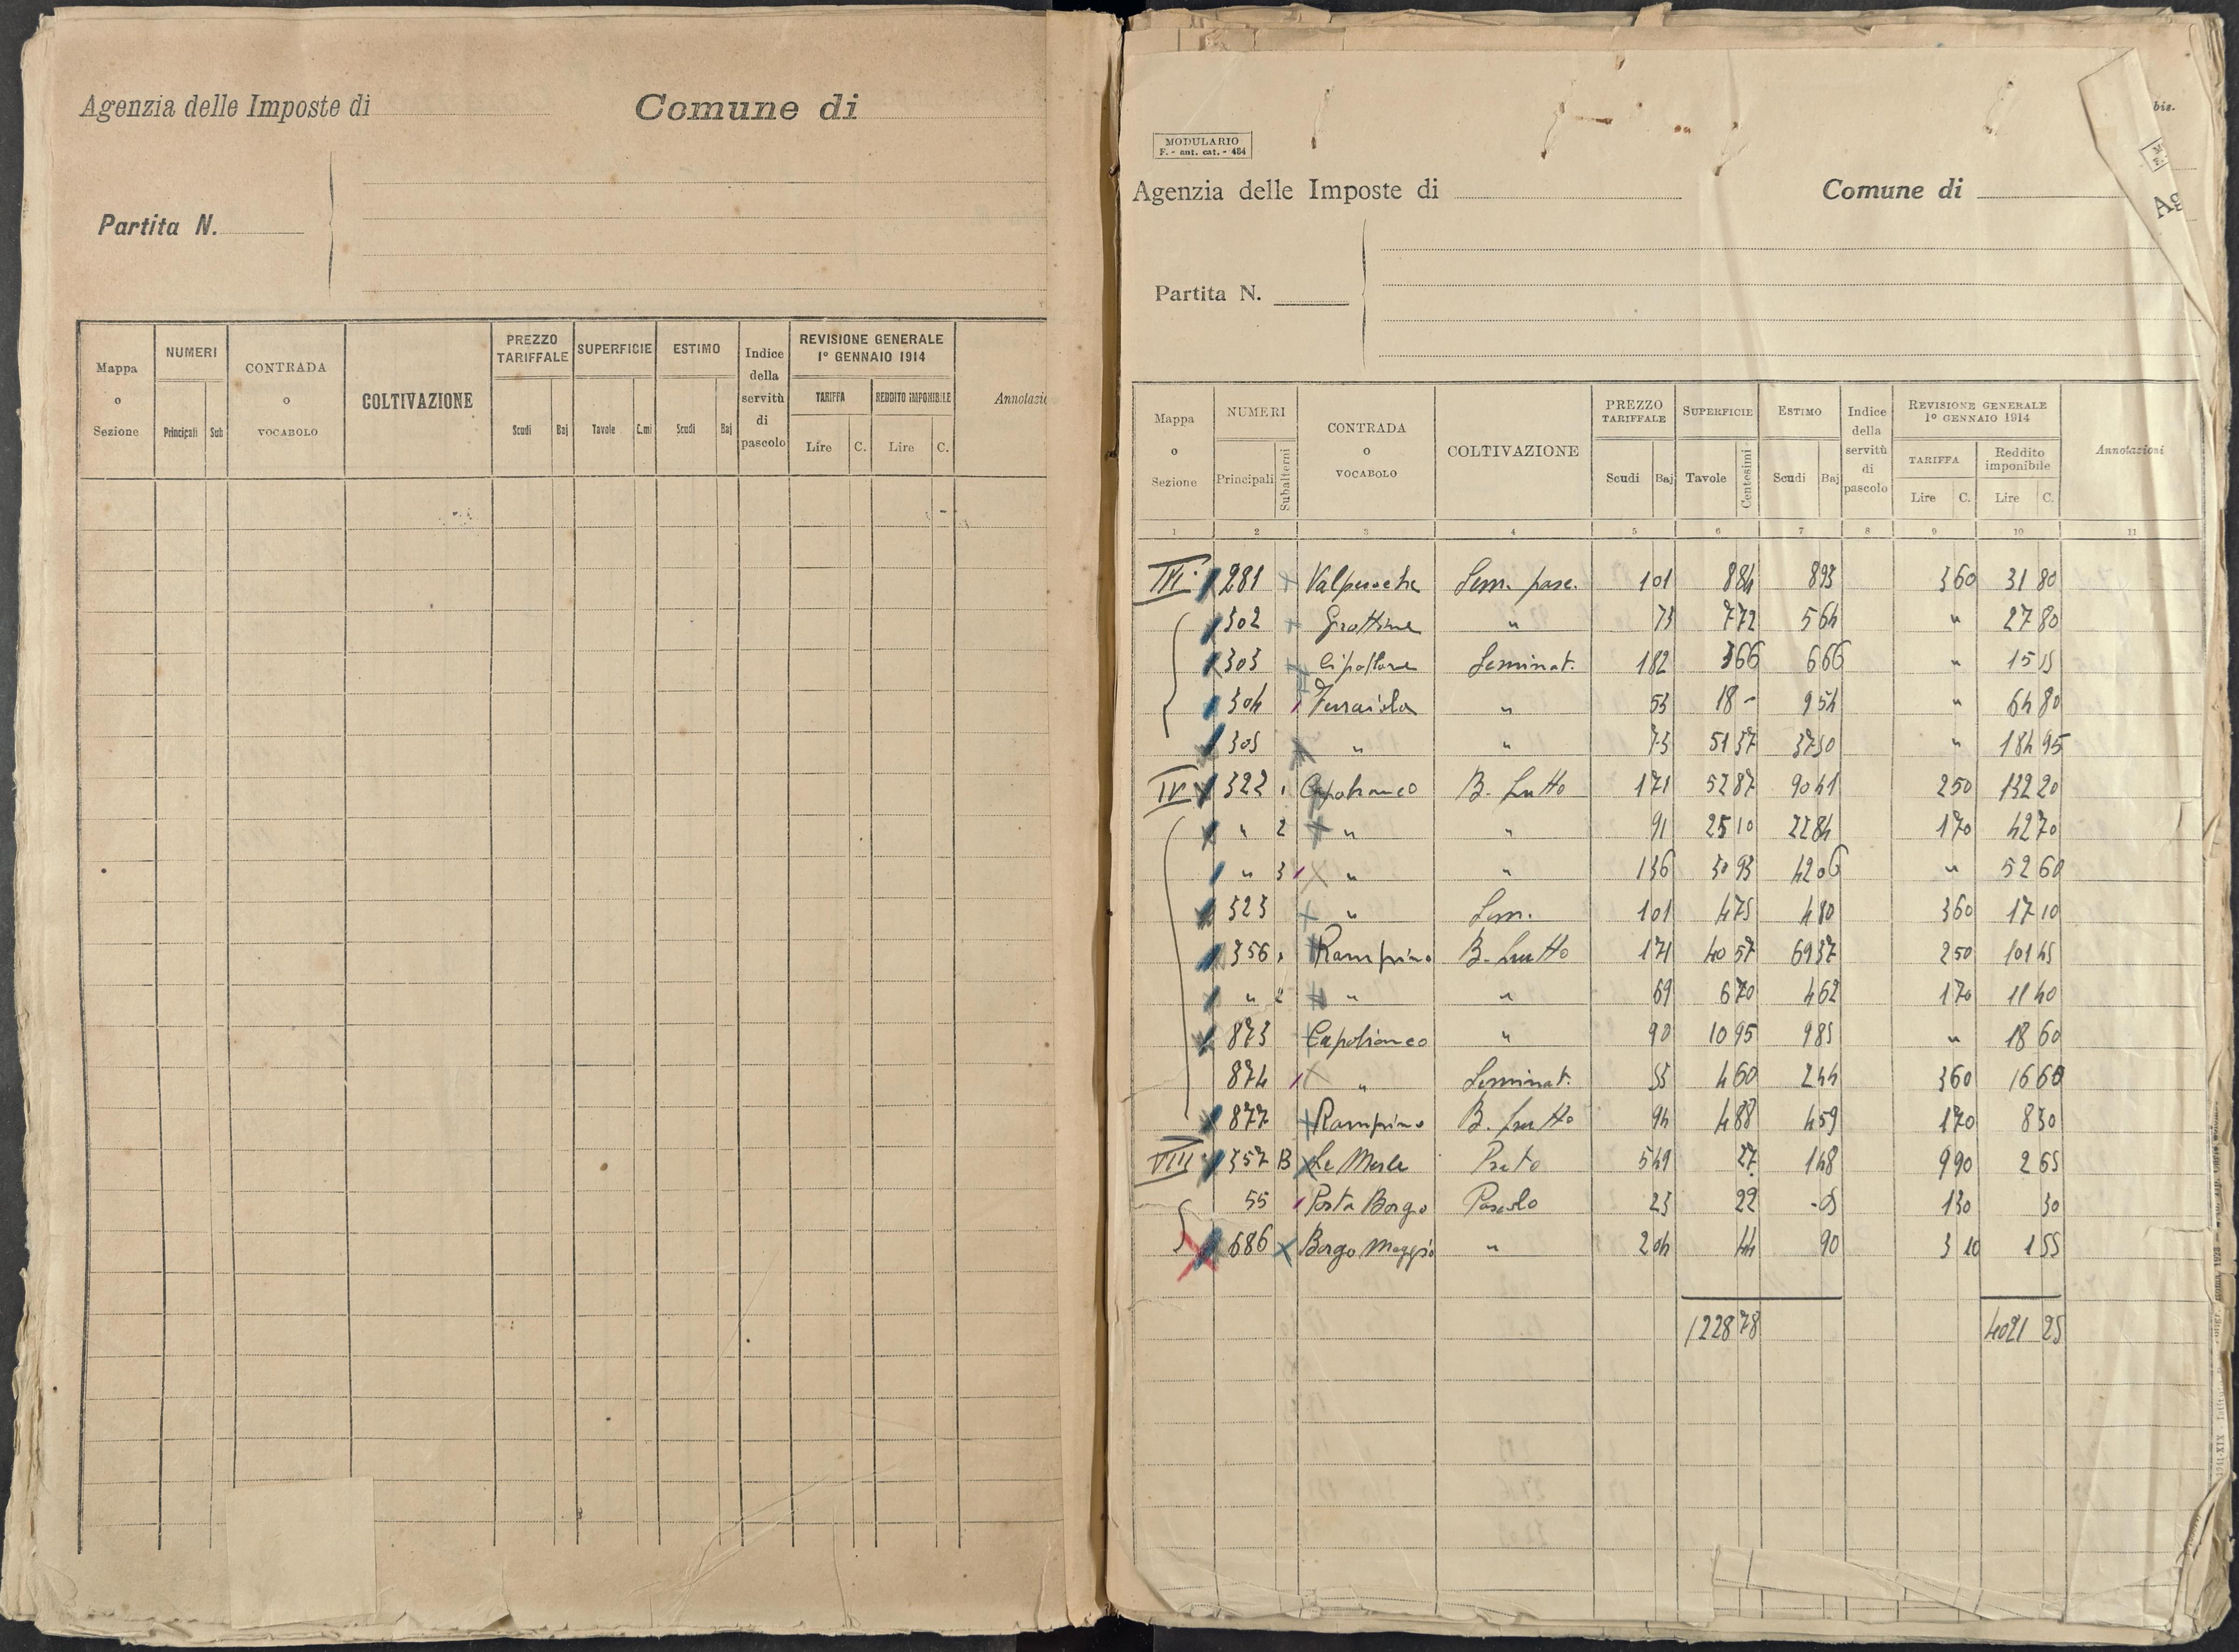 Agenzia delle Imposte di Comune di
Partita N.
Mappa o Sezione
NUMERI
Principali Sub
CONTRADA o VOCABOLO
COLTIVAZIONE
PREZZO TARIFFALE
Scudi Baj
SUPERFICIE
Tavole C.mi
ESTIMO
Scudi Baj
Indice della servitù di pascolo
REVISIONE GENERALE 1° GENNAIO 1914
TARIFFA REDDITO IMPONIBILE
Lire C. Lire C.
Annotazio
bis.
MODULARIO
F. - ant. cat. - 464
Agenzia delle Imposte di Comune di
Ag
Partita N.
Mappa o Sezione
NUMERI
Principali Subalterni
CONTRADA o VOCABOLO
COLTIVAZIONE
PREZZO TARIFFALE
Scudi Baj
SUPERFICIE
Tavole Centesimi
ESTIMO
Scudi Baj
Indice della servitù di pascolo
REVISIONE GENERALE 1° GENNAIO 1914
TARIFFA Reddito imponibile
Lire C. Lire C.
Annotazioni
1 2 3 4 5 6 7 8 9 10 11
281 Sem. pasc. 1 01 8 84 8 93 3 60 31 80
302 Grottine " 73 7 72 5 64 " 27 80
303 Cipollare Seminat. 1 82 3 66 6 66 " 15 15
304 Ferraiola " 53 18 - 9 54 " 64 80
305 " " 73 51 37 37 50 " 184 95
IV 322 1 Capobianco B. frutto 1 71 52 87 90 41 2 50 132 20
" 2 " " 91 25 10 22 84 1 70 42 70
" 3 " " 1 36 30 93 42 06 " 52 60
323 " Sem. 1 01 4 75 4 80 3 60 17 10
356 1 Rampino B. frutto 1 71 40 57 69 37 2 50 101 45
" 2 " " 69 6 70 4 62 1 70 11 40
873 Capobianco " 90 10 95 9 85 " 18 60
874 " Seminat. 53 4 60 2 44 3 60 16 60
877 Rampino B. frutto 94 4 88 4 59 1 70 8 30
VIII 357 B Le Merle Prato 5 49 27 1 48 9 90 2 65
55 Porta Borgo Pascolo 23 22 - 05 1 30 30
686 Borgo Maggio " 2 04 44 90 3 10 1 55
1228 78 4021 25